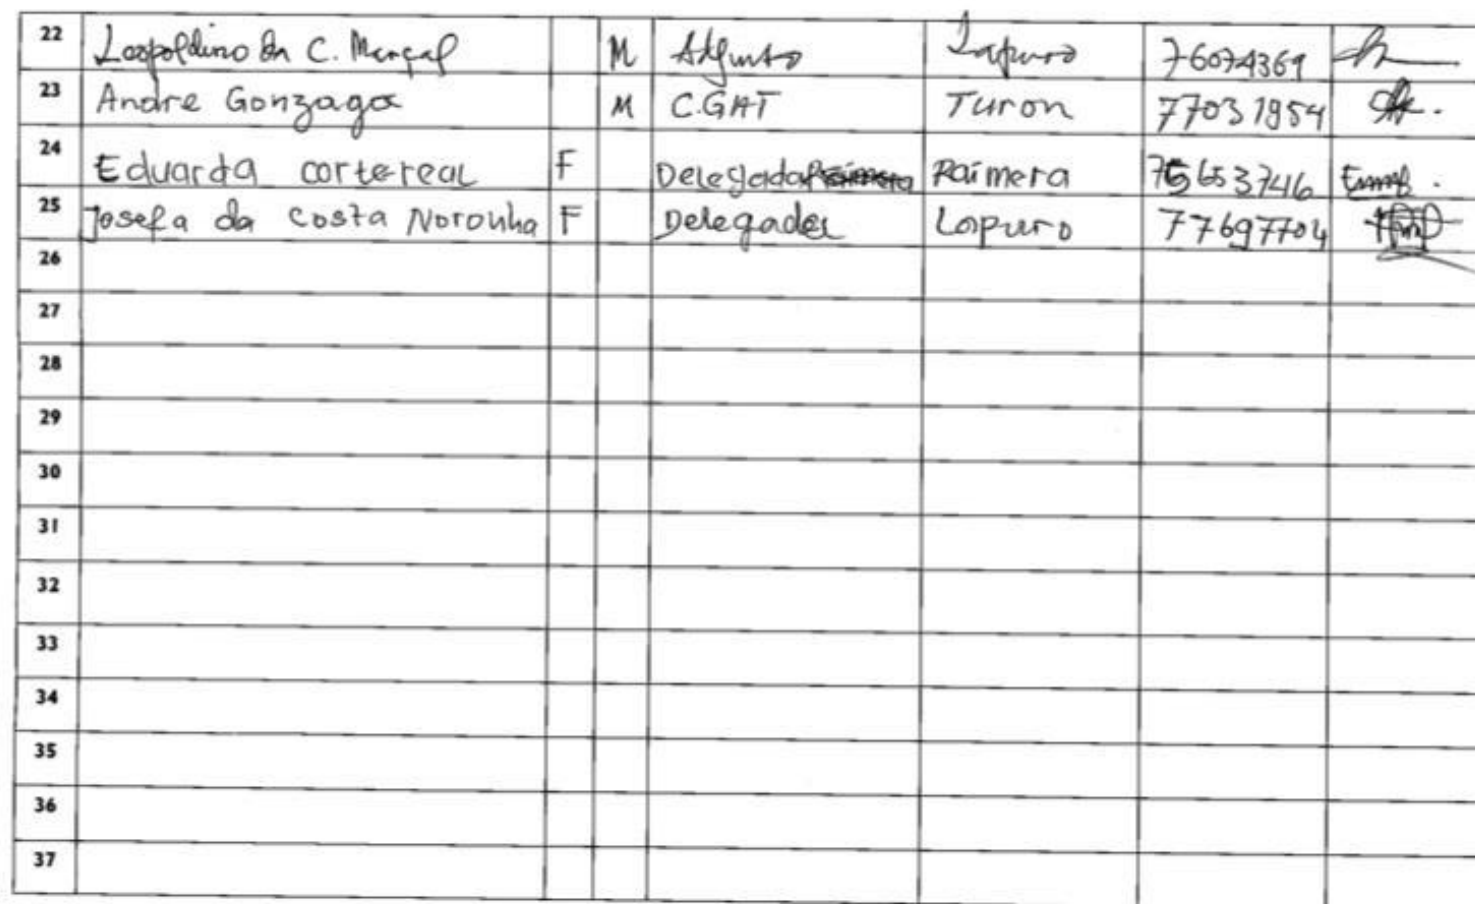 22 Leopoldino da C. Marçal M Adjunto Lapuro 76074369
23 Andre Gonzaga M C.GAT Turon 77031954
24 Eduarda corte-real F Delegada Raimera 75653746
25 Josefa da Costa Noronha F Delegada Lapuro 77697704
26
27
28
29
30
31
32
33
34
35
36
37